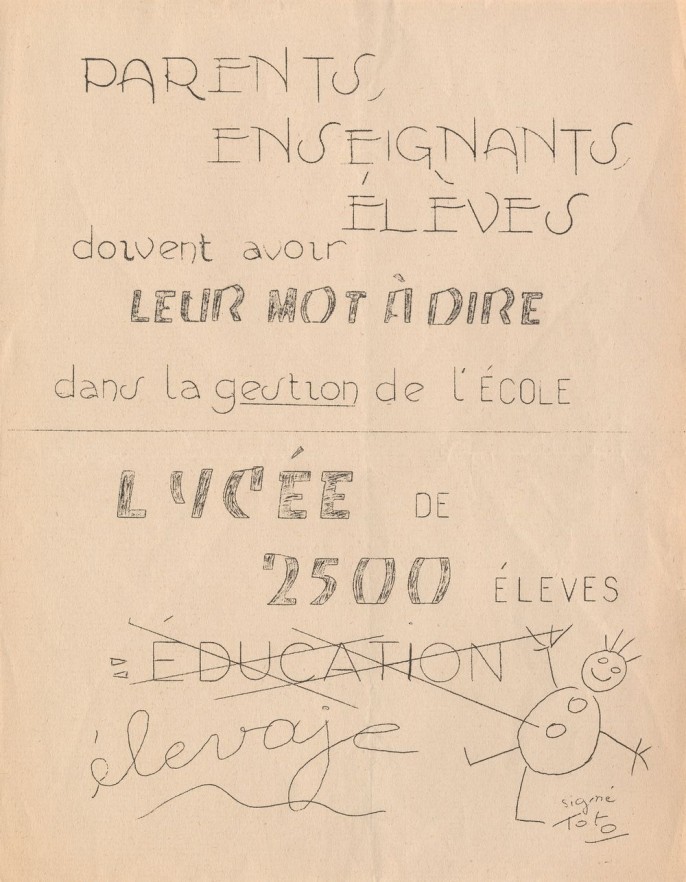 PARENTS,
ENSEIGNANTS,
ÉLÈVES
doivent avoir
LEUR MOT À DIRE
dans la gestion de l'ÉCOLE
LYCÉE DE
2500 ÉLEVES
ÉDUCATION
élevaje
signé
Toto